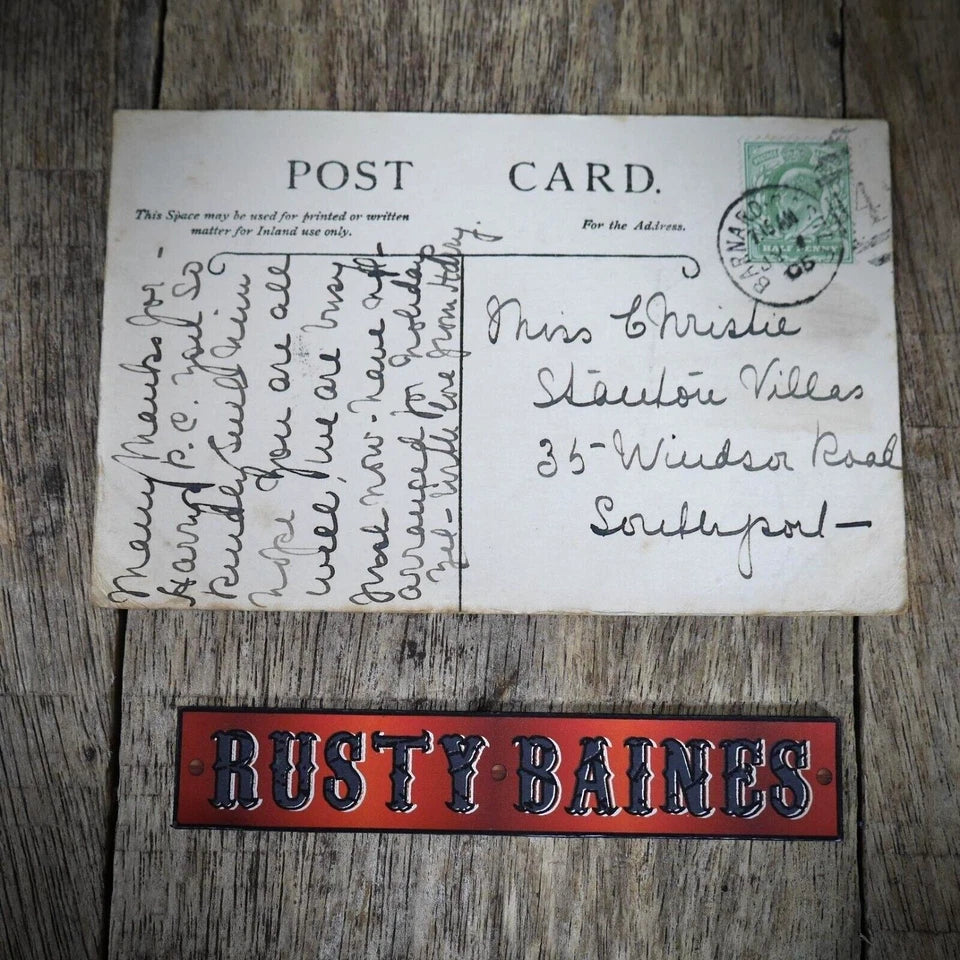 POST CARD.
This Space may be used for printed or written
matter for Inland use only.
For the Address.
HALF PENNY
BARNARD
05
Many thanks for -
Harry's p.c. you so
kindly sent him
hope you are all
well, we are busy
just now - have
arranged for holiday
with love from Harry.
Miss Christie
Stanton Villas
35 Windsor Road
Southport -
RUSTY BAINES